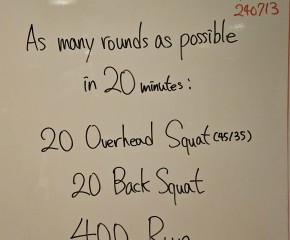 240713
As many rounds as possible
in 20 minutes:
20 Overhead Squat (45/35)
20 Back Squat
400 Run